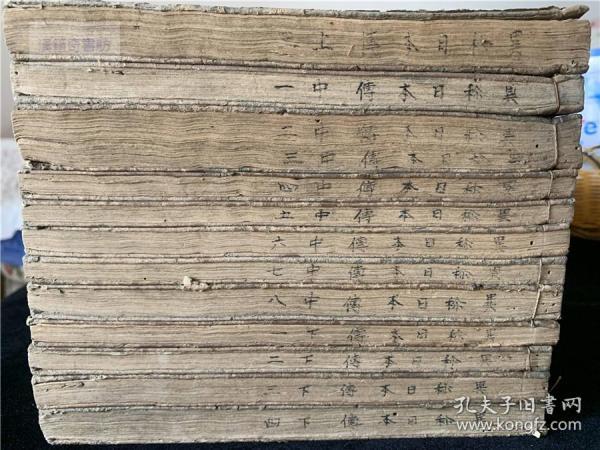 異称日本傳上
異称日本傳中一
異称日本傳中二
異称日本傳中三
異称日本傳中四
異称日本傳中五
異称日本傳中六
異称日本傳中七
異称日本傳中八
異称日本傳下一
異称日本傳下二
異称日本傳下三
異称日本傳下四
孔夫子旧書网
www.kongfz.com